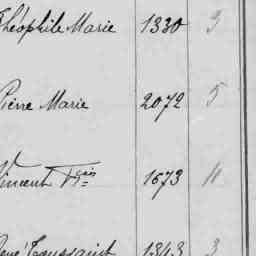 Théophile Marie 1330 9
Pierre Marie 2072 5
Vincent Fçois 1673 11
René Toussaint 1343 3